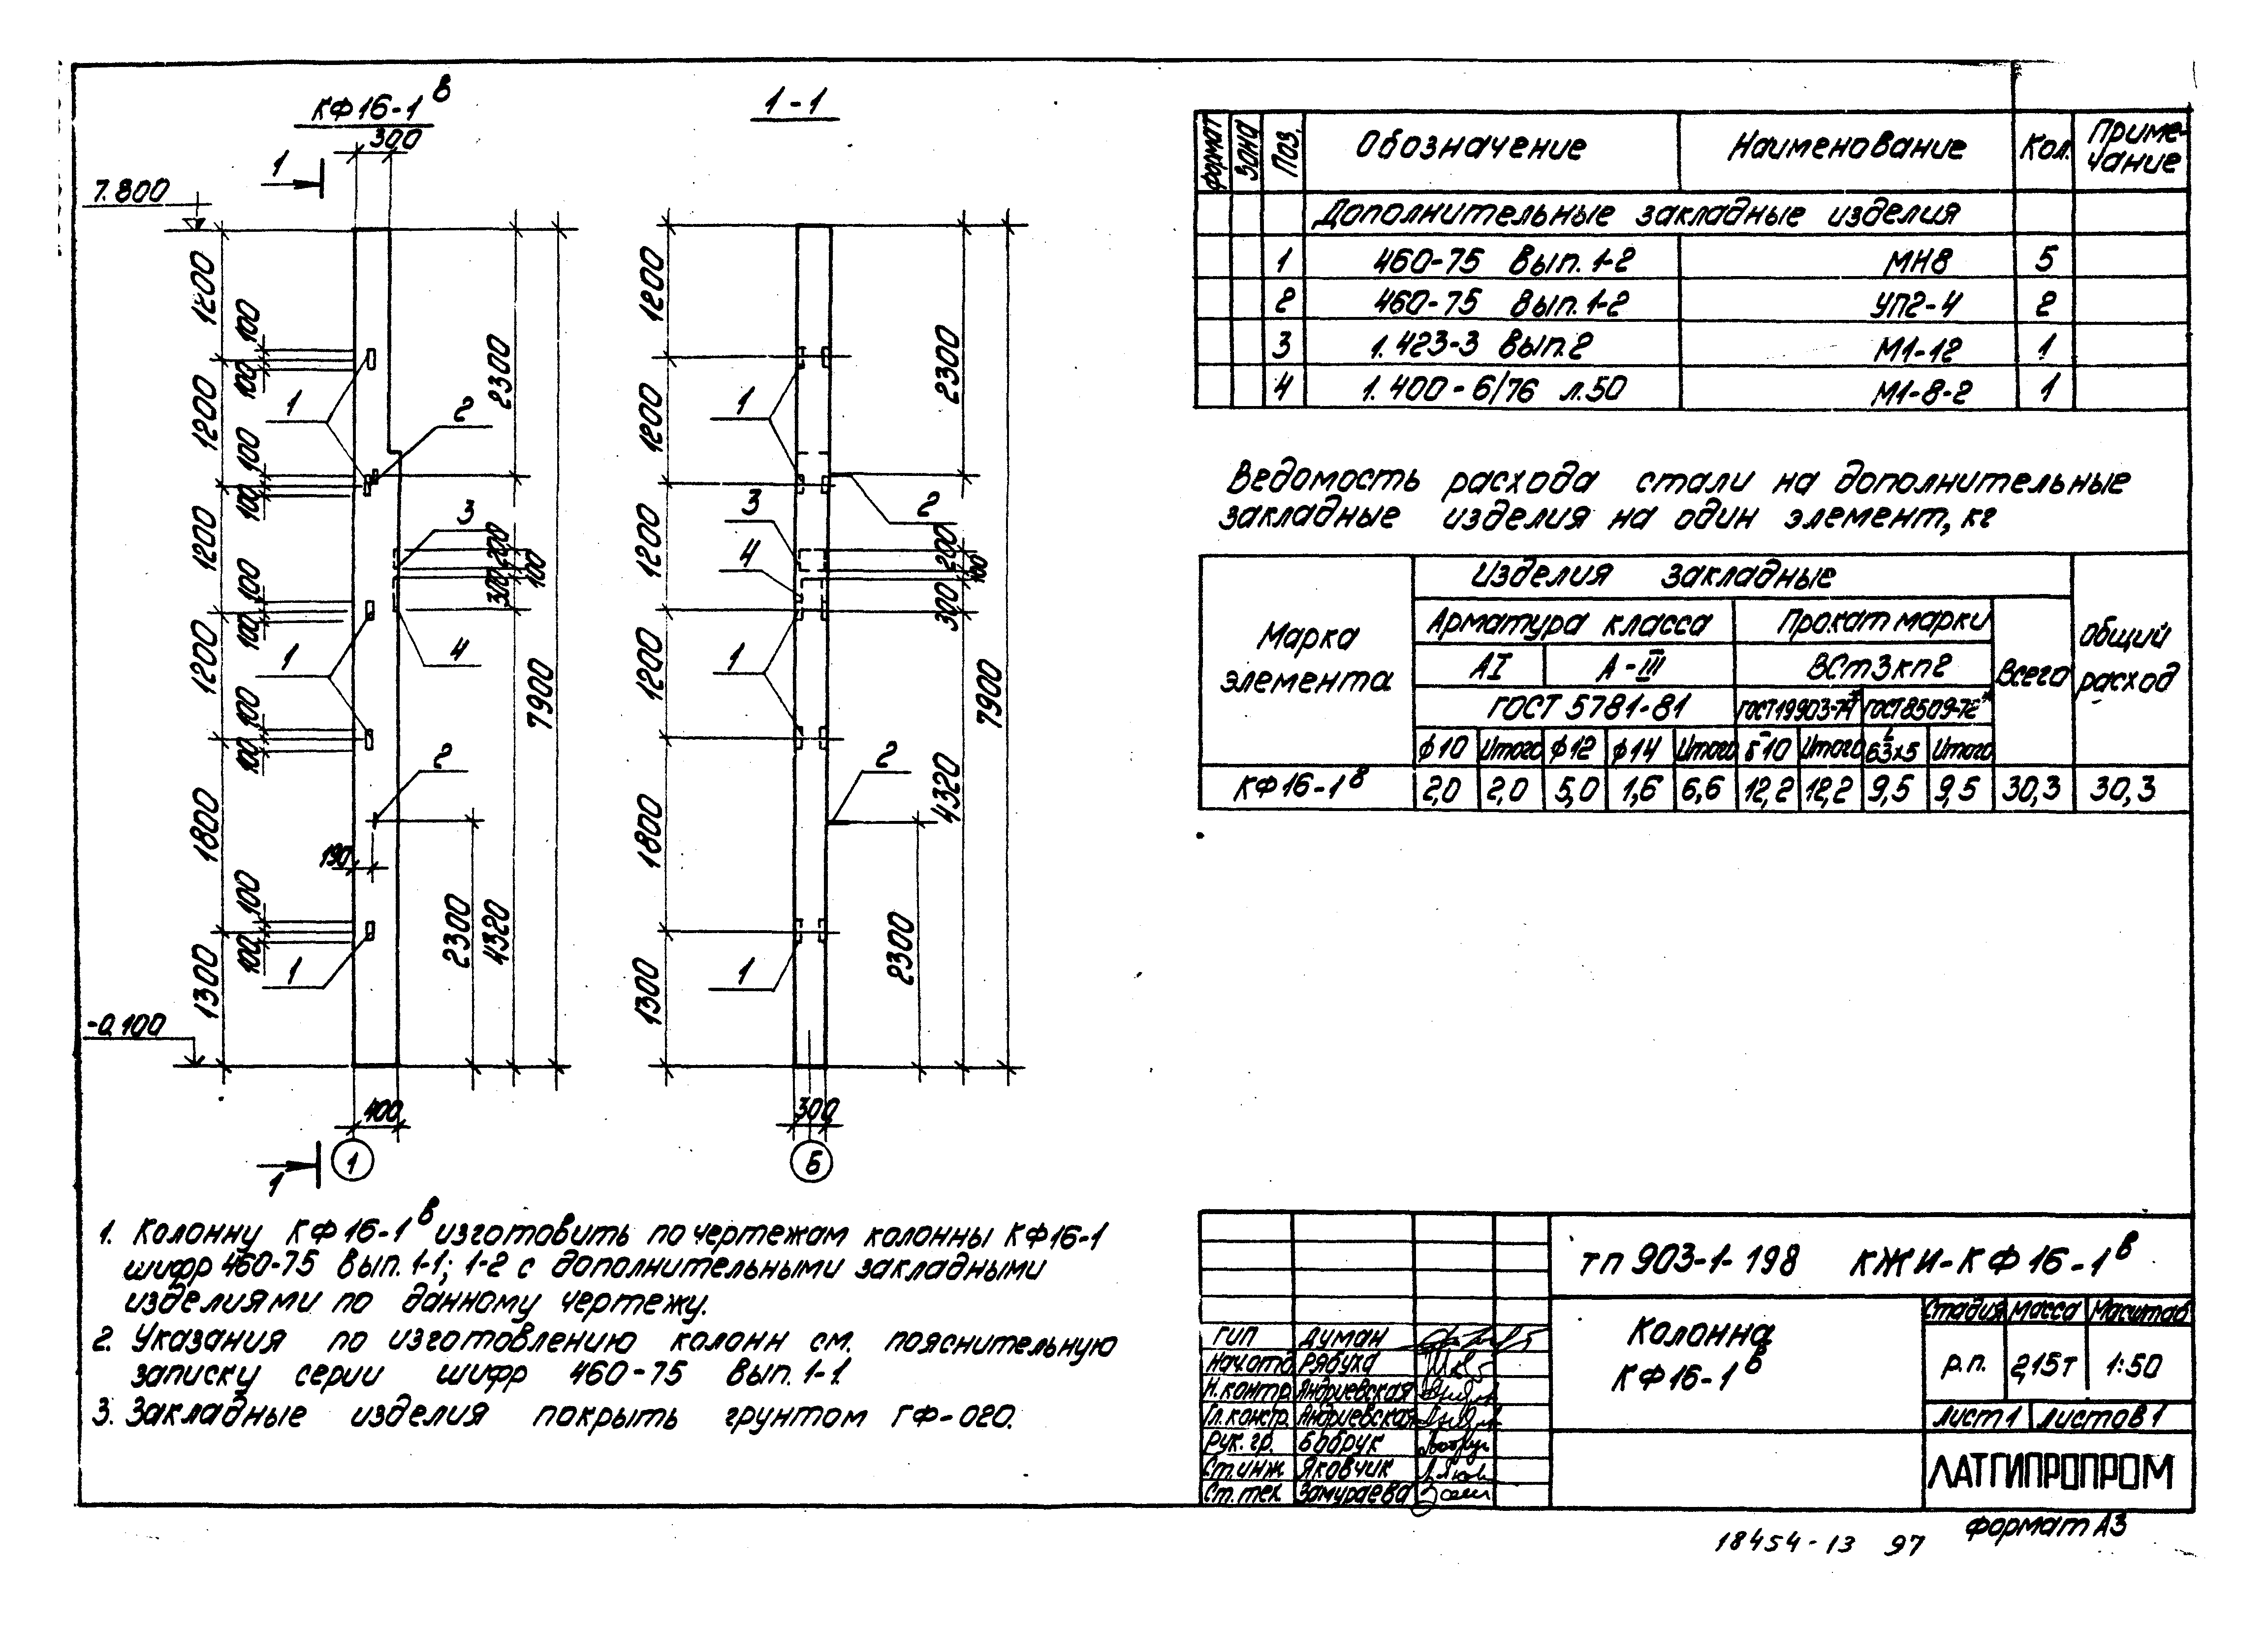 КФ16-1в
300
1
7.800
1200
100
100
1
1200
100
100
2
2300
1200
3
200
100
300
100
100
1
4
1200
7900
100
100
2
1800
190
100
100
1
2300
4320
1300
-0.100
400
1
1
1-1
1200
1200
1
2300
3
4
2
1200
200
100
300
1
1200
7900
2
4320
1800
1
2300
1300
300
Б
Формат Зона Поз. Обозначение Наименование Кол. Приме-
чание
Дополнительные закладные изделия
1 460-75 Вып. 1-2 МН8 5
2 460-75 Вып. 1-2 УП2-4 2
3 1.423-3 Вып.2 М1-12 1
4 1.400-6/76 л.50 М1-8-2 1
Ведомость расхода стали на дополнительные
закладные изделия на один элемент, кг
Марка
элемента
Изделия закладные
Общий
расход
Арматура класса Прокат марки Всего
АI А-III ВСт3кп2
ГОСТ 5781-81 ГОСТ19903-74* ГОСТ8509-72*
ф10 Итого ф12 ф14 Итого δ-10 Итого L63х5 Итого
КФ16-1в 2,0 2,0 5,0 1,6 6,6 12,2 12,2 9,5 9,5 30,3 30,3
1. Колонну КФ16-1в изготовить по чертежам колонны КФ16-1
шифр 460-75 Вып. 1-1; 1-2 с дополнительными закладными
изделиями по данному чертежу.
2. Указания по изготовлению колонн см. пояснительную
записку серии шифр 460-75 Вып. 1-1.
3. Закладные изделия покрыть грунтом ГФ-020.
ТП 903-1-198 КЖИ-КФ16-1в
Колонна
КФ16-1в
Стадия Масса Масштаб
р.п. 2,15т 1:50
Лист 1 Листов 1
ЛАТГИПРОПРОМ
ГИП Думан
Нач.отд Рябуха
Н.контр. Андриевская
Гл.констр. Андриевская
Рук. гр. Бобрук
Ст.инж Яковчик
Ст.тех Замураева
Формат А3
18454-13 97